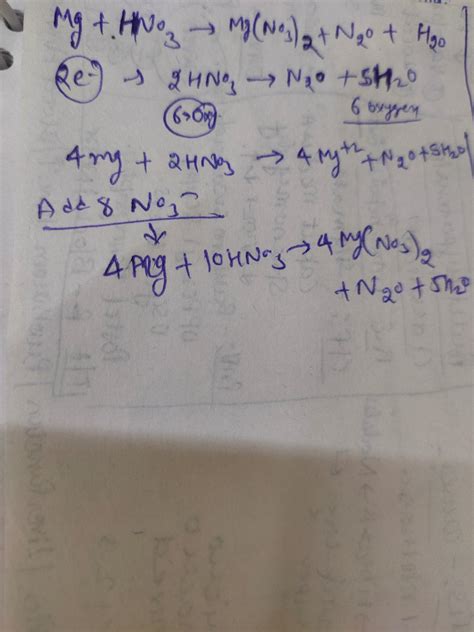 Mg + HNO3 → Mg(NO3)2 + N2O + H2O
2e- → 2HNO3 → N2O + 5H2O
6 Oxygen
4mg + 2HNO3 → 4Mg+2 + N2O + 5H2O
Add 8 NO3-
4Mg + 10HNO3 → 4Mg(NO3)2
+ N2O + 5H2O